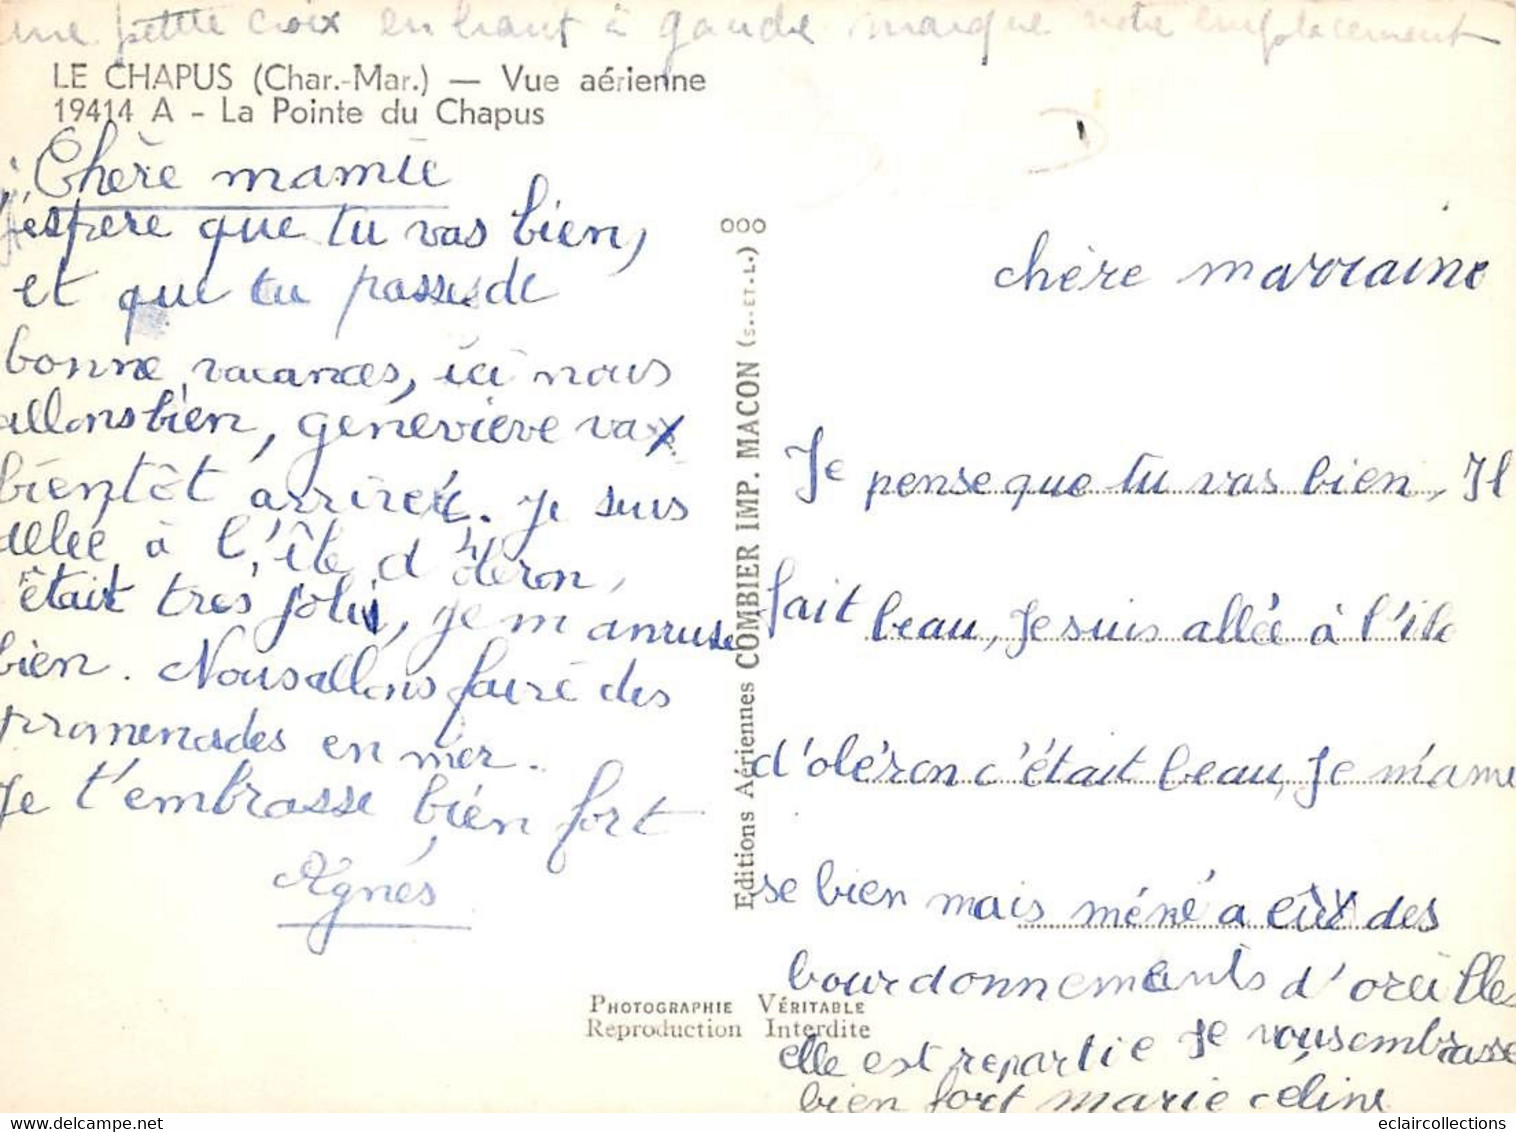 une petite croix en haut à gauche marque notre emplacement
LE CHAPUS (Char.-Mar.) — Vue aérienne
19414 A - La Pointe du Chapus
Chère mamie
J'espère que tu vas bien,
et que tu passes de
bonne vacances, ici nous
allons bien, geneviève va
bientôt arriver. Je suis
allée à l'île d'oléron,
s'était très joli, je m'amuse
bien. Nous allons faire des
promenades en mer.
Je t'embrasse bien fort
Agnés
Editions Aériennes COMBIER IMP. MACON (S.-ET-L.)
PHOTOGRAPHIE VÉRITABLE
Reproduction Interdite
chère marraine
Je pense que tu vas bien, Il
fait beau, Je suis allée à l'ile
d'oléron c'était beau, Je m'amu
se bien mais méné a eût des
bourdonnements d'oreilles
elle est repartie Je vous embrasse
bien fort marie céline
eclaircollections